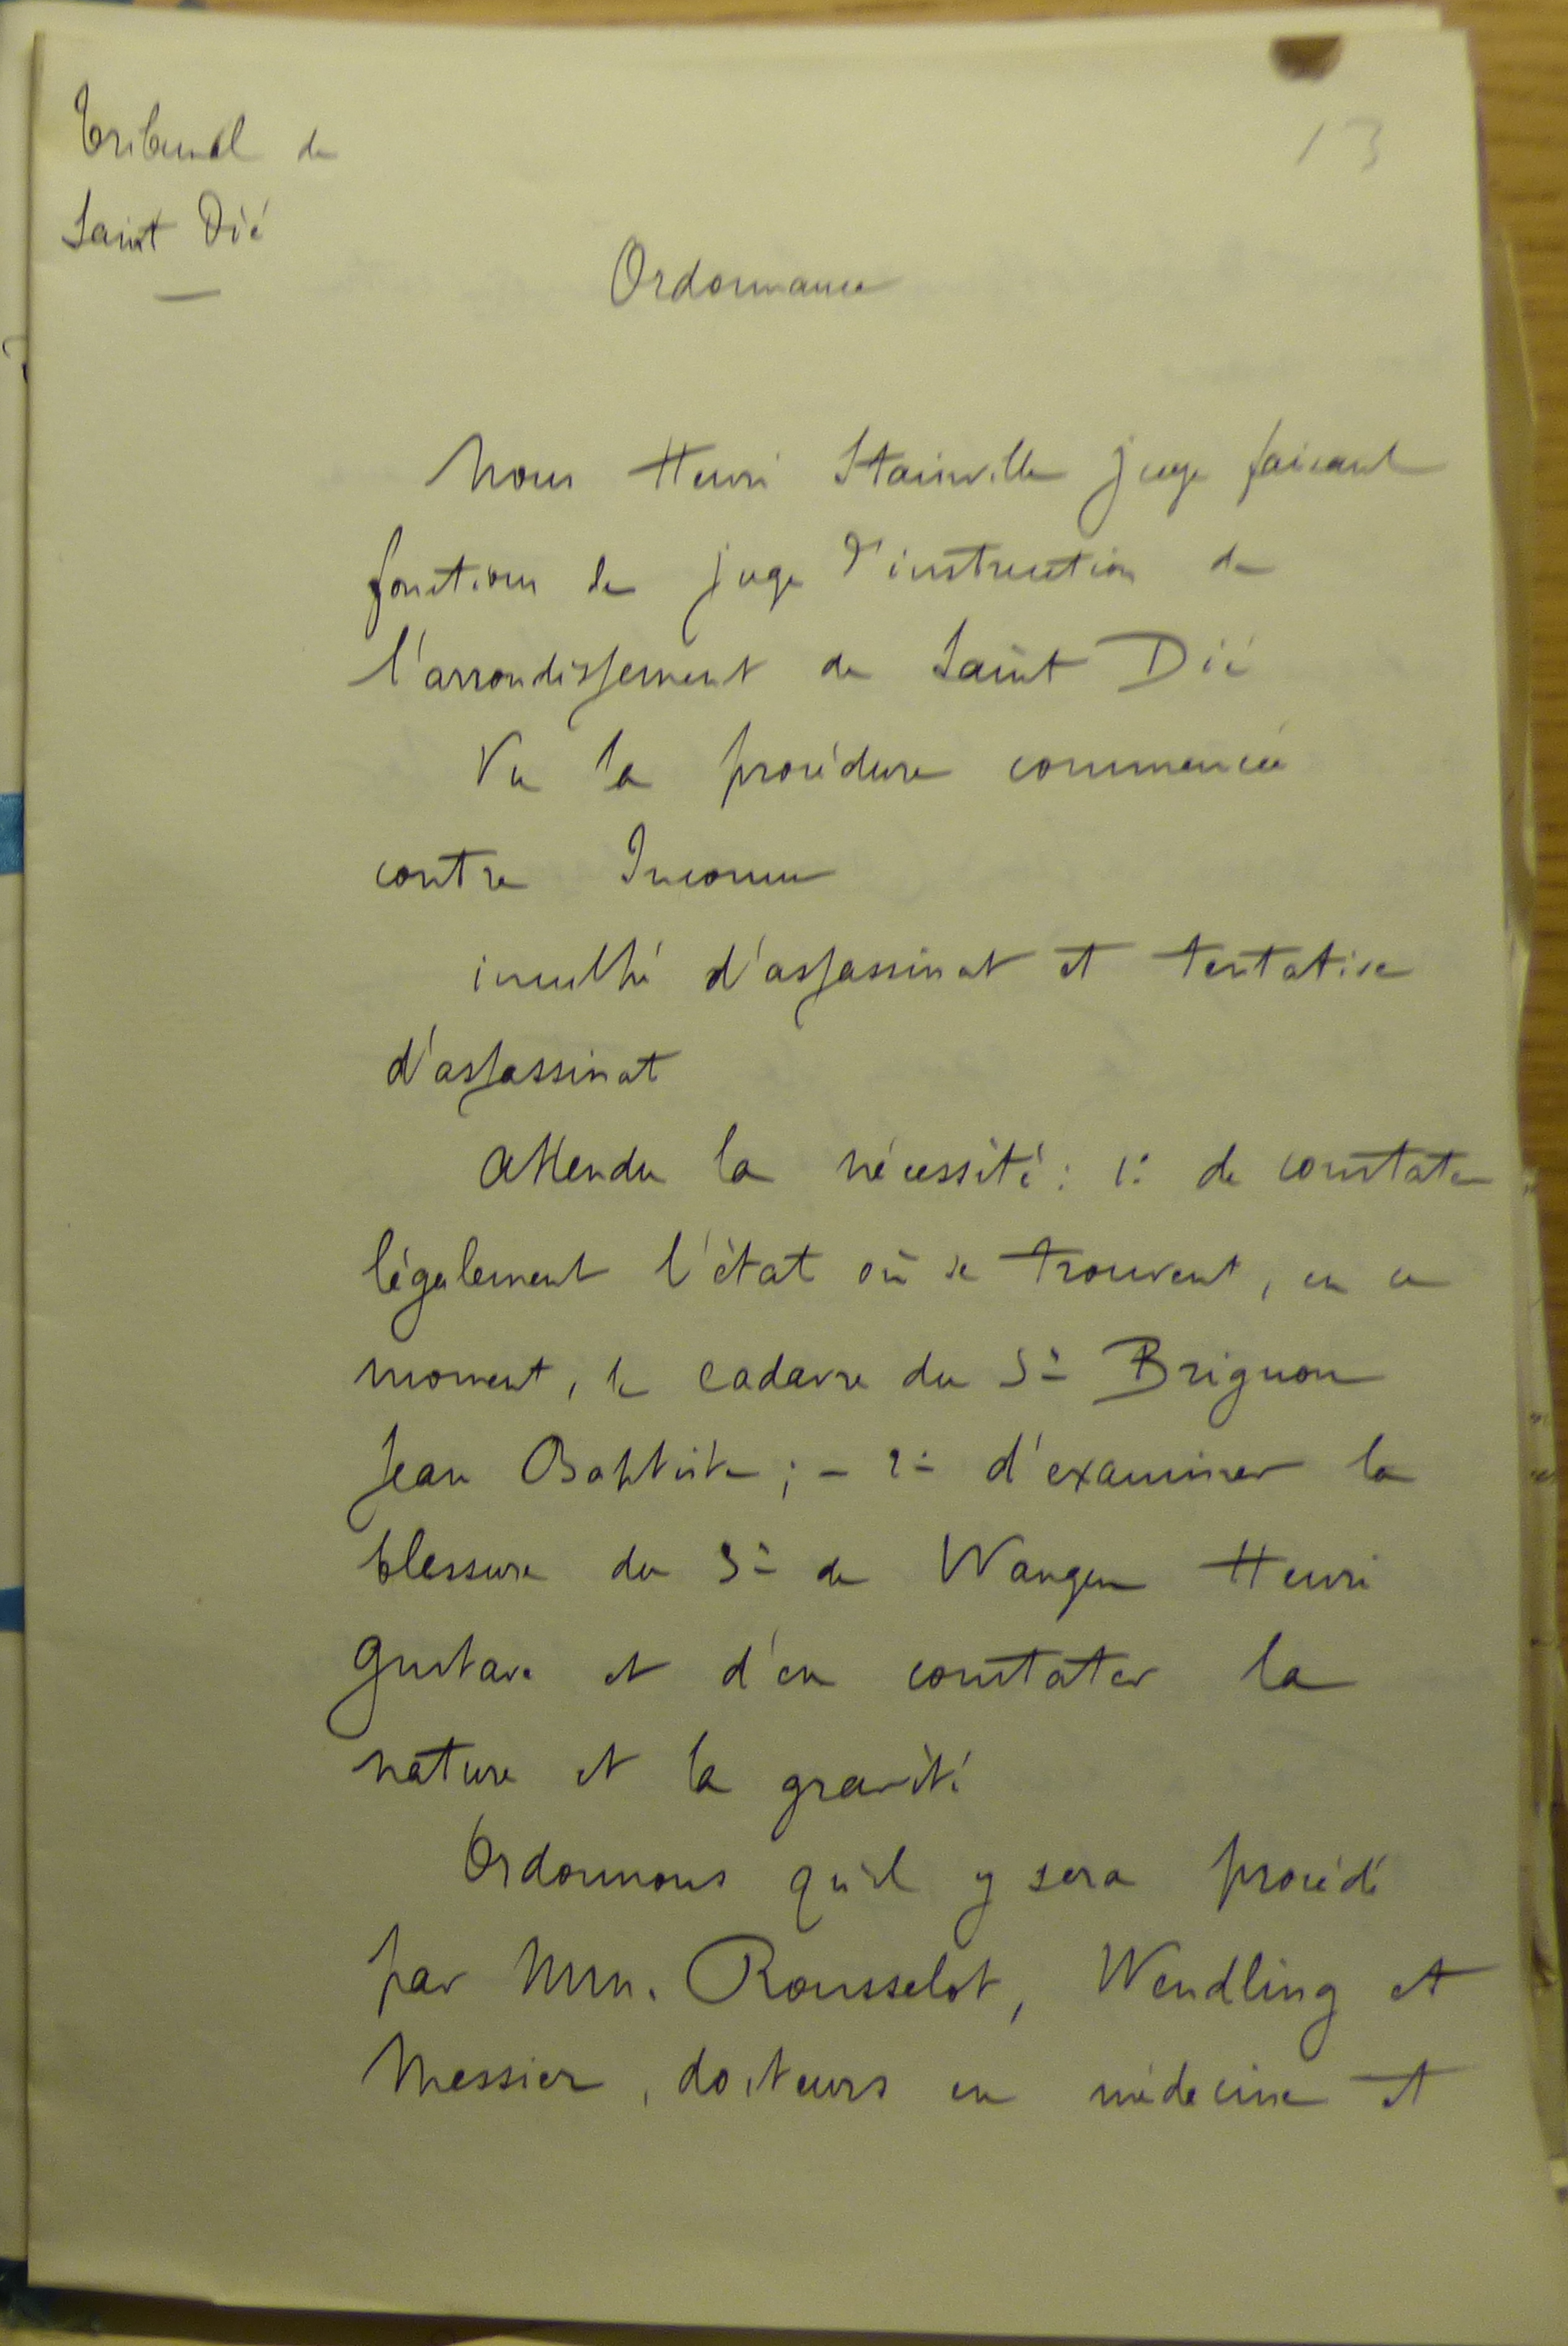 Tribunal de
Saint Dié
13
Ordonnance
Nous Henri Stainville juge faisant
fonctions de juge d'instruction de
l'arrondissement de Saint Dié
Vu la procédure commencée
contre Inconnu
inculpé d'assassinat et tentative
d'assassinat
Attendu la nécessité : 1° de constater
légalement l'état où se trouvent, en ce
moment, le cadavre du Sr Brignon
Jean Baptiste ; - 2° d'examiner la
blessure du Sr de Wangen Henri
Gustave et d'en constater la
nature et la gravité
Ordonnons qu'il y sera procédé
par MM. Rousselot, Wendling et
Messier, docteurs en médecine et